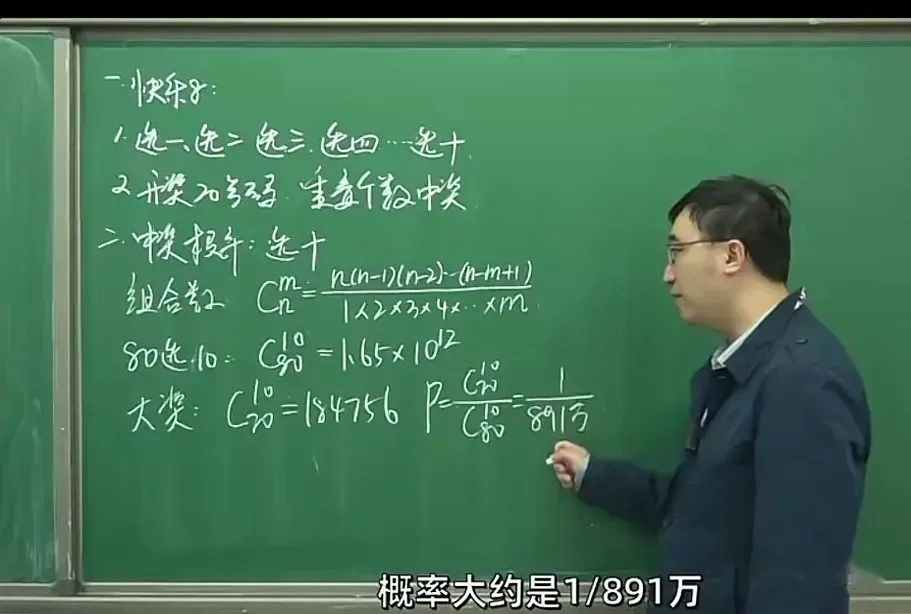 一.快乐8:
1.选一、选二 选三.选四…选十
2.开奖20号码.重叠个数中奖
二.中奖概率:选十
组合数 Cₙᵐ=n(n-1)(n-2)…(n-m+1)/1×2×3×4×…×m.
80选10: C₈₀¹⁰=1.65×10¹²
大奖: C₂₀¹⁰=184756 P=C₂₀¹⁰/C₈₀¹⁰=1/891万
概率大约是1/891万